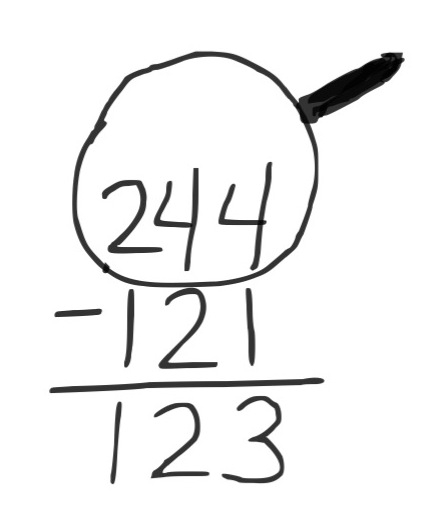 244
-121
123